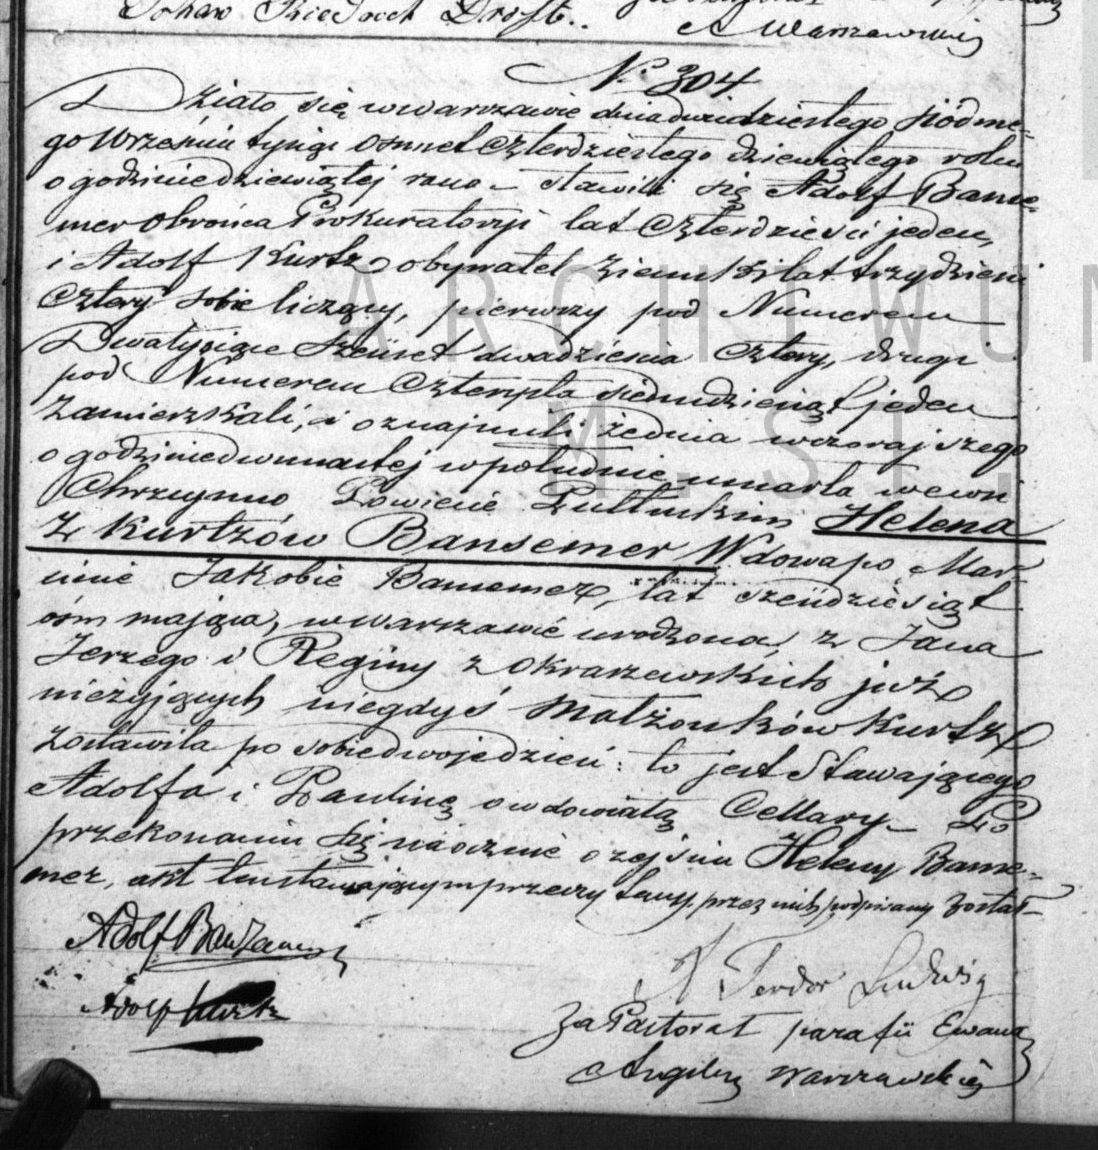 Johan Friedrich Droste..
A Warszawskiej
No 304
Działo się w warszawie dnia dwudziestego siódme-
go Września tysiąc osmset czterdziestego dziewiątego roku
o godzinie dziewiątej rano – stawili się Adolf Banse-
mer Obrońca Prokuratoryi lat czterdzieści jeden,
i Adolf Kurtz obywatel ziemski lat trzydzieści
cztery sobie liczący, pierwszy pod Numerem
Dwatysiące sześset dwadzieścia cztery, drugi
pod Numerem czterysta siedmdziesiąt jeden
zamieszkali, i oznajmili że dnia wczorajszego
o godzinie dwunastej w południe umarła we wsi
Chrzczynno Powiecie Pułtuskim Helena
z Kurtzów Bansemer Wdowa po Mar-
cinie Jakóbie Bansemer, lat sześdziesiąt
ośm mająca, w warszawie urodzona, z Jana
Jerzego i Reginy z Okraszewskich już
nieżyjących niegdyś Małżonków Kurtz
zostawiła po sobie dwoje dzieci: to jest Stawającego
Adolfa i Paulinę owdowiałą Cellary – Po
przekonaniu się naocznie o zejściu Heleny Banse-
mer, akt ten stawającym przeczytany, przez nich podpisany został–
Adolf Bansemer
Adolf Kurtz
X Teodor Ludwig
Za Pastorat parafii Ewang
Augsbu Warszawskiej
ARCHIWUM
M. ST.